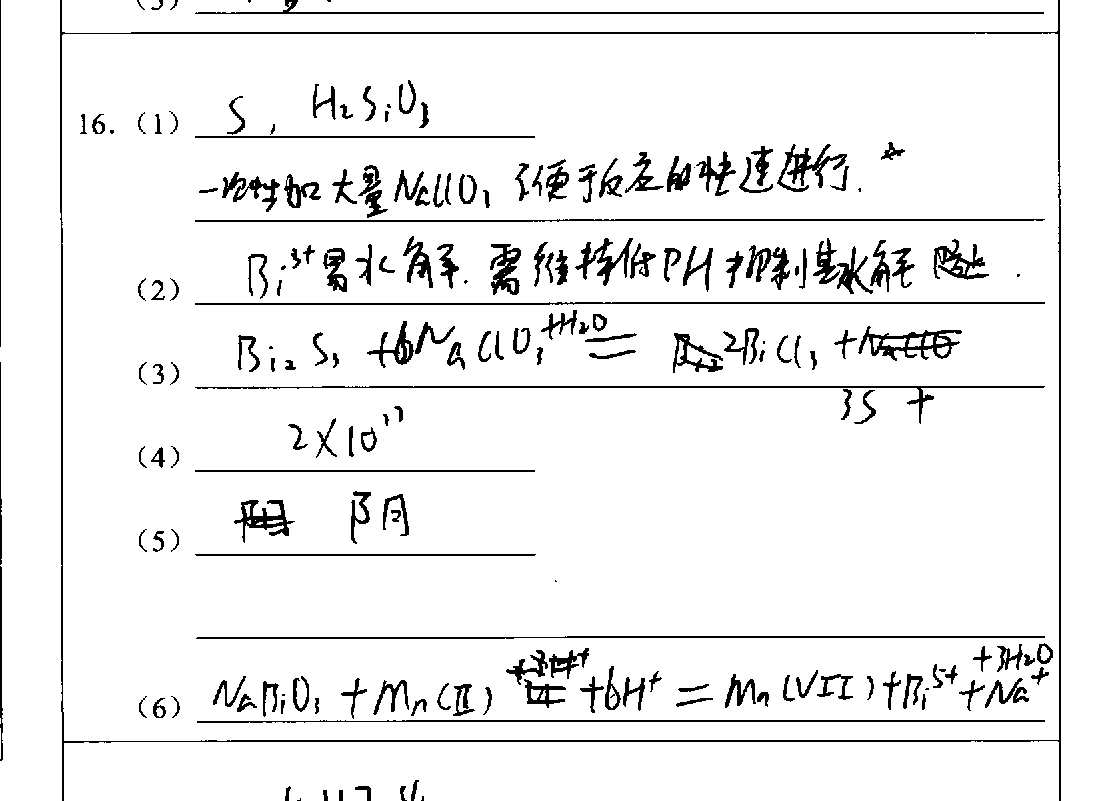 16. (1) S, H₂SiO₃
一次性加大量NaClO₃ 便于反应的快速进行.
(2) Bi³⁺易水解. 需维持低PH抑制其水解
(3) Bi₂S₃ +6NaClO₃ +H₂O = 2BiCl₃ +
3S +
(4) 2×10¹⁷
(5) 阴
(6) NaBiO₃ + Mn(II) +6H⁺ = Mn(VII)+Bi⁵⁺+Na⁺ +3H₂O